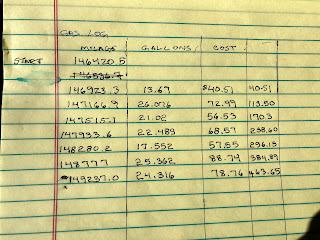 GAS LOG
MILAGE GALLONS COST
START 146420.5
146923.3 13.67 $40.51 40.51
147166.9 26.076 72.99 113.50
147515.1 21.02 56.53 170.3
147933.6 22.489 68.57 238.60
148280.2 17.552 57.55 296.15
148777 25.362 88.74 384.89
149237.0 24.316 78.76 463.65